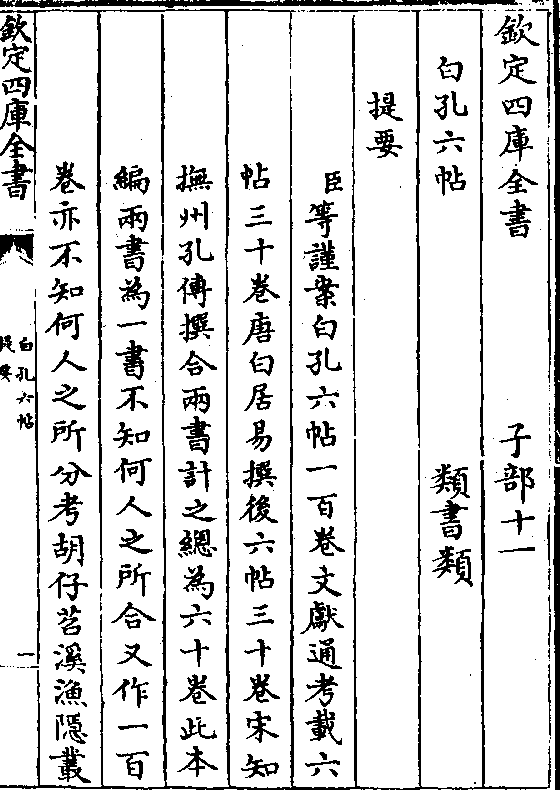 欽定四庫全書　子部十一
白孔六帖　類書類
提要
臣等謹案白孔六帖一百卷文獻通考載六
帖三十卷唐白居易撰後六帖三十卷宋知
撫州孔傳撰合兩書計之總為六十卷此本
編兩書為一書不知何人之所合又作一百
卷亦不知何人之所分考胡仔苕溪漁隱叢
欽定四庫全書
白孔六帖
提要
一